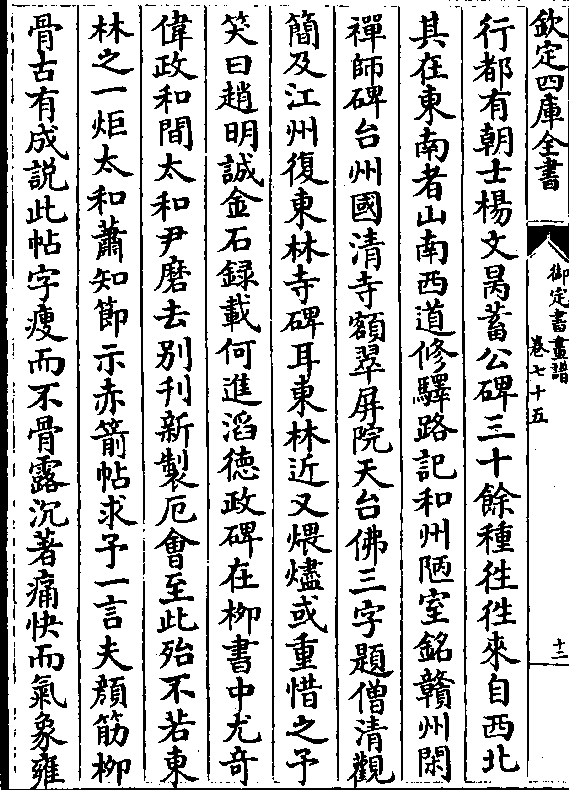 欽定四庫全書
御定書畫譜
卷七十五
十二
行都有朝士楊文昺蓄公碑三十餘種徃徃來自西北
其在東南者山南西道修驛路記和州陋室銘贛州閑
禪師碑台州國清寺額翠屏院天台佛三字題僧清觀
簡及江州復東林寺碑耳東林近又煨燼或重惜之予
笑曰趙明誠金石録載何進滔德政碑在柳書中尤竒
偉政和間太和尹磨去别刋新製厄會至此殆不若東
林之一炬太和蕭知節示赤箭帖求予一言夫顔筋柳
骨古有成説此帖字瘦而不骨露沉著痛快而氣象雍